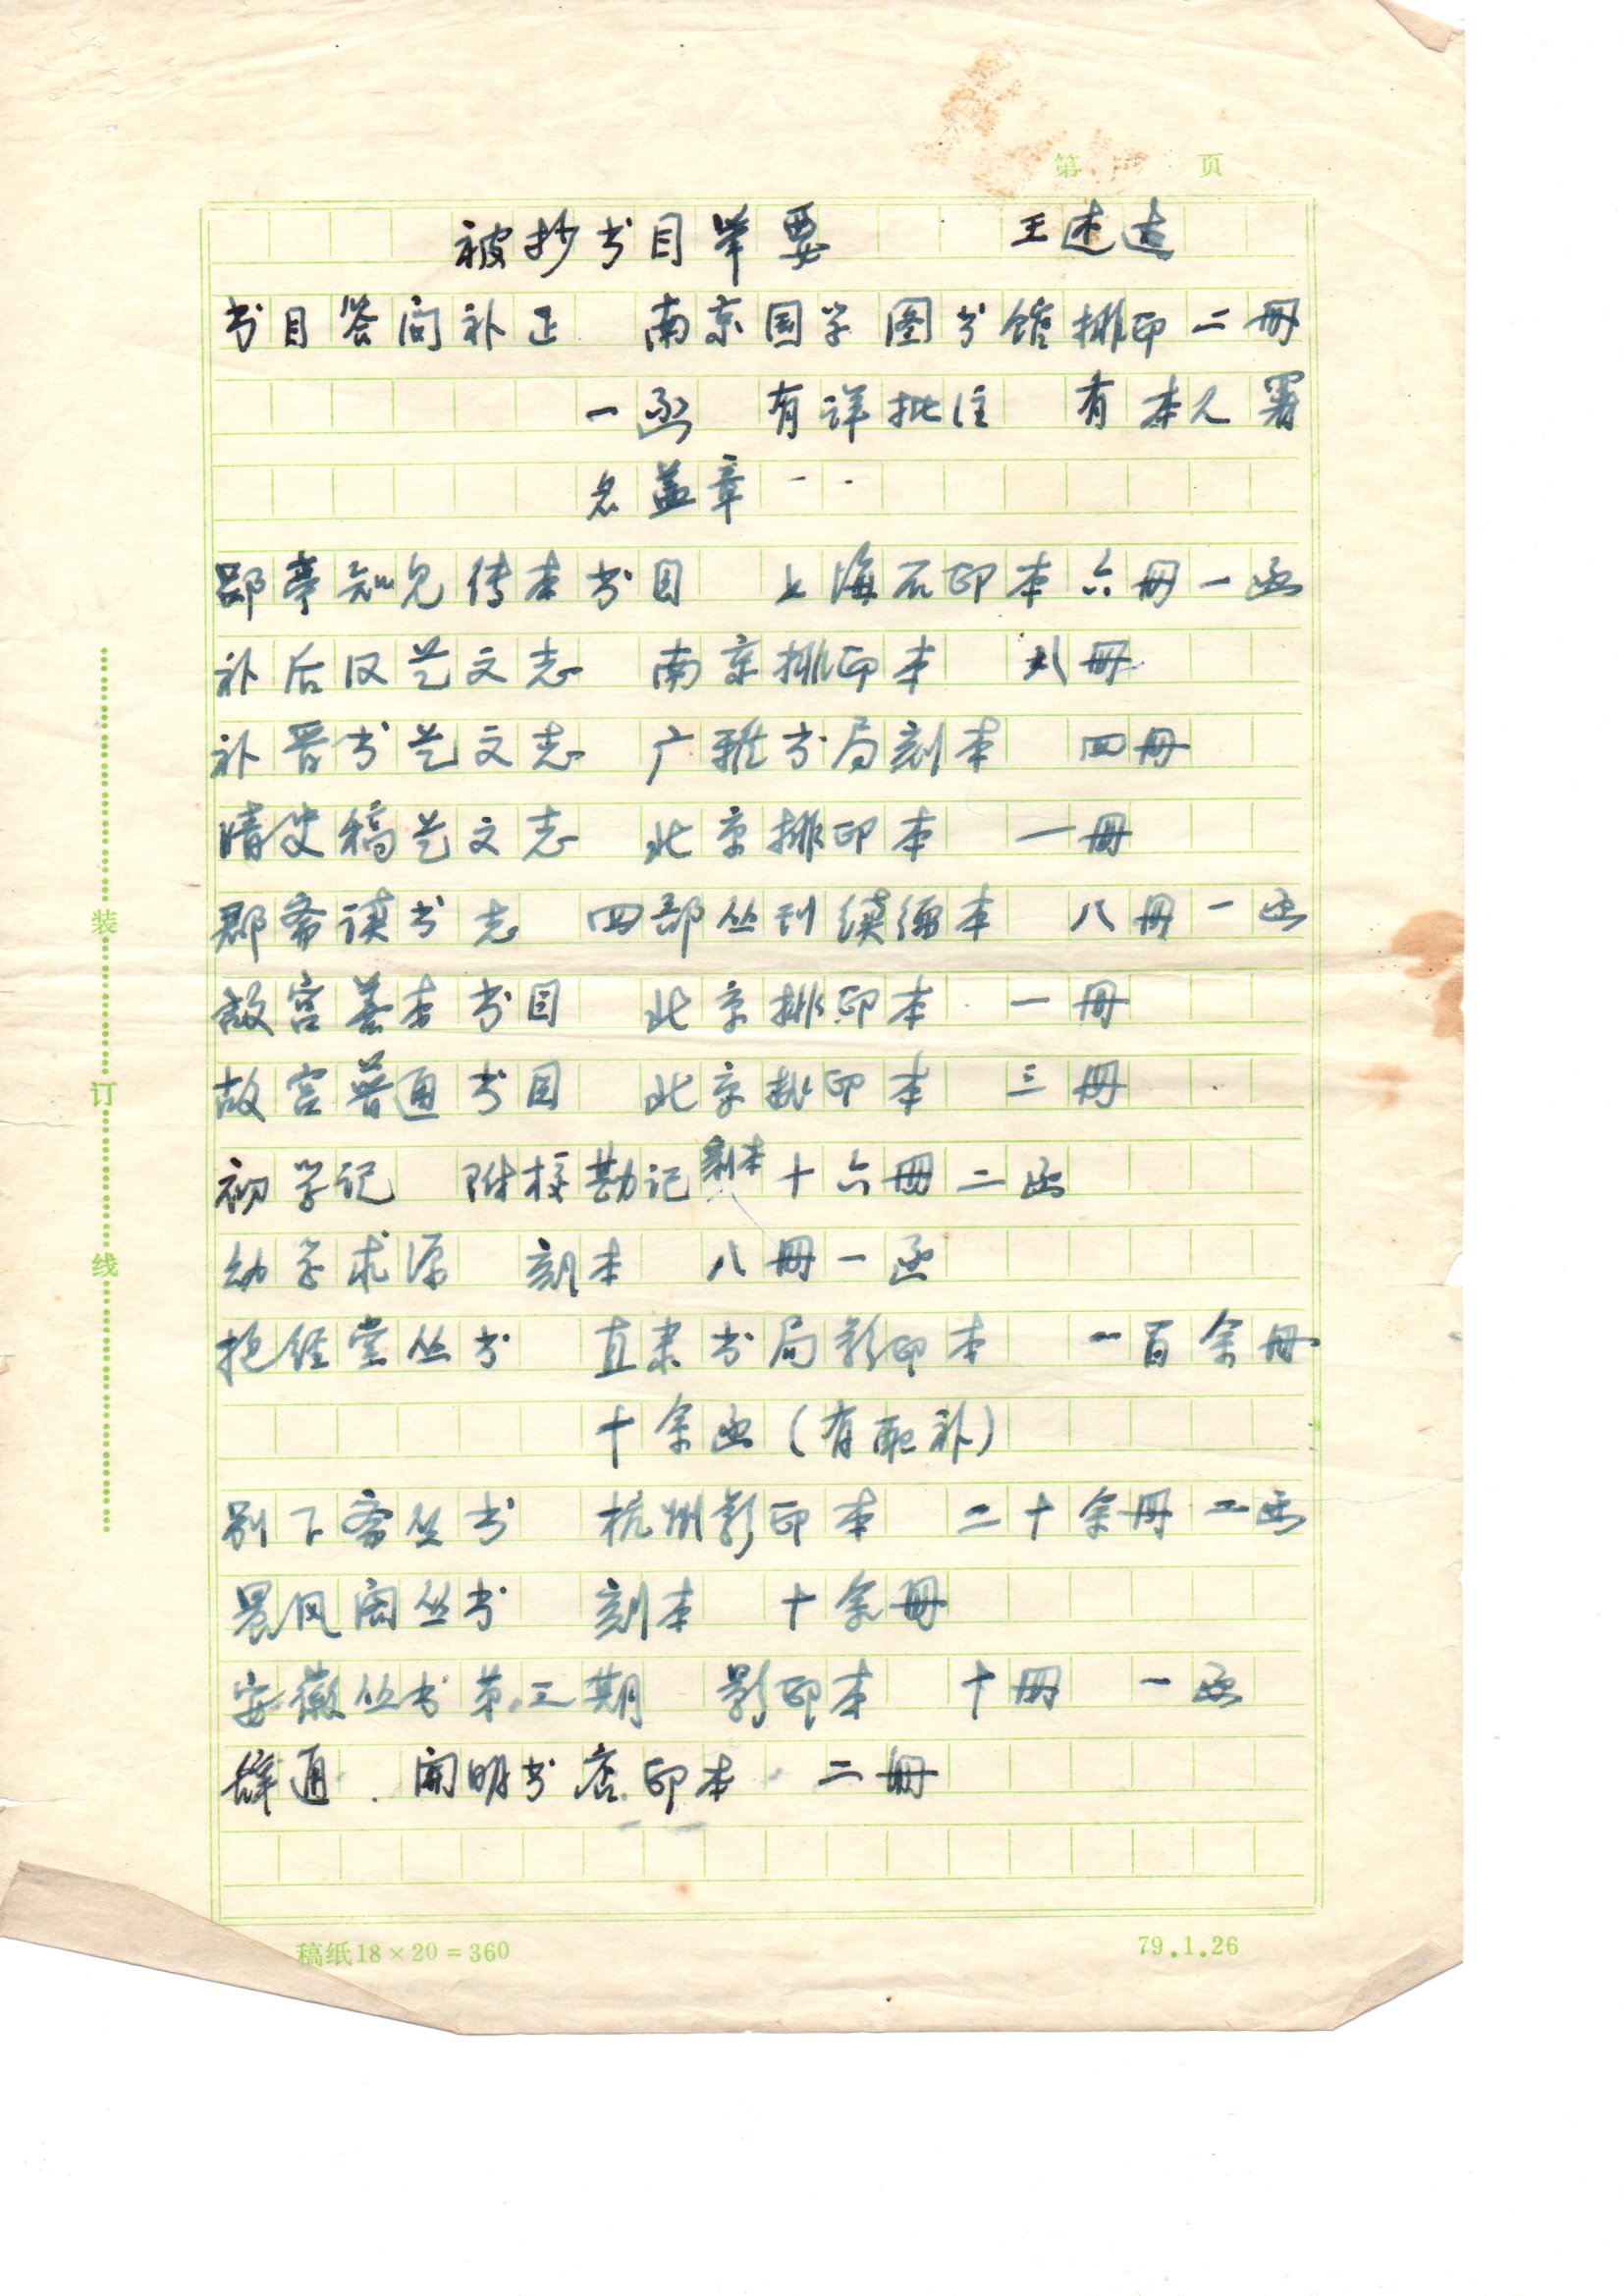 第 页
被抄书目举要 王述达
书目答问补正 南京国学图书馆排印二册
一函 有详批注 有本人署
名盖章
郘亭知见传本书目 上海石印本六册一函
补后汉艺文志 南京排印本 八册
补晋书艺文志 广雅书局刻本 四册
清史稿艺文志 北京排印本 一册
郡斋读书志 四部丛刊续编本 八册一函
故宫善本书目 北京排印本 一册
故宫普通书目 北京排印本 三册
初学记 附校勘记刻本十六册二函
幼学求源 刻本 八册一函
抱经堂丛书 直隶书局影印本 一百余册
十余函(有配补)
别下斋丛书 杭州影印本 二十余册二函
晨风阁丛书 刻本 十余册
安徽丛书第三期 影印本 十册 一函
辞通 . 开明书店印本 二册
装
订
线
稿纸18×20=360 79.1.26